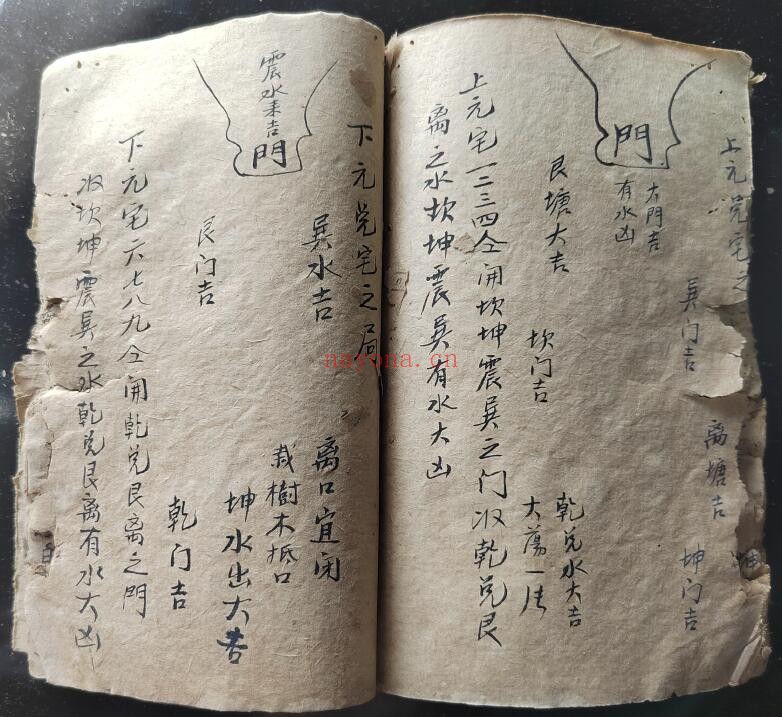 上元兑宅之
巽门吉
离塘吉
坤门吉
門
大門吉
有水凶
艮塘大吉
坎门吉
乾兑水大吉
大蕩一
上元宅一二三四仝開坎坤震巽之门収乾兑艮
离之水坎坤震巽有水大凶
下元兑宅之局
震水来吉
門
巽水吉
离口宜闭
栽樹木抵口
坤水出大吉
艮门吉
乾门吉
下元宅六七八九仝開乾兑艮离之門
収坎坤震巽之水乾兑艮离有水大凶
nayona.cn